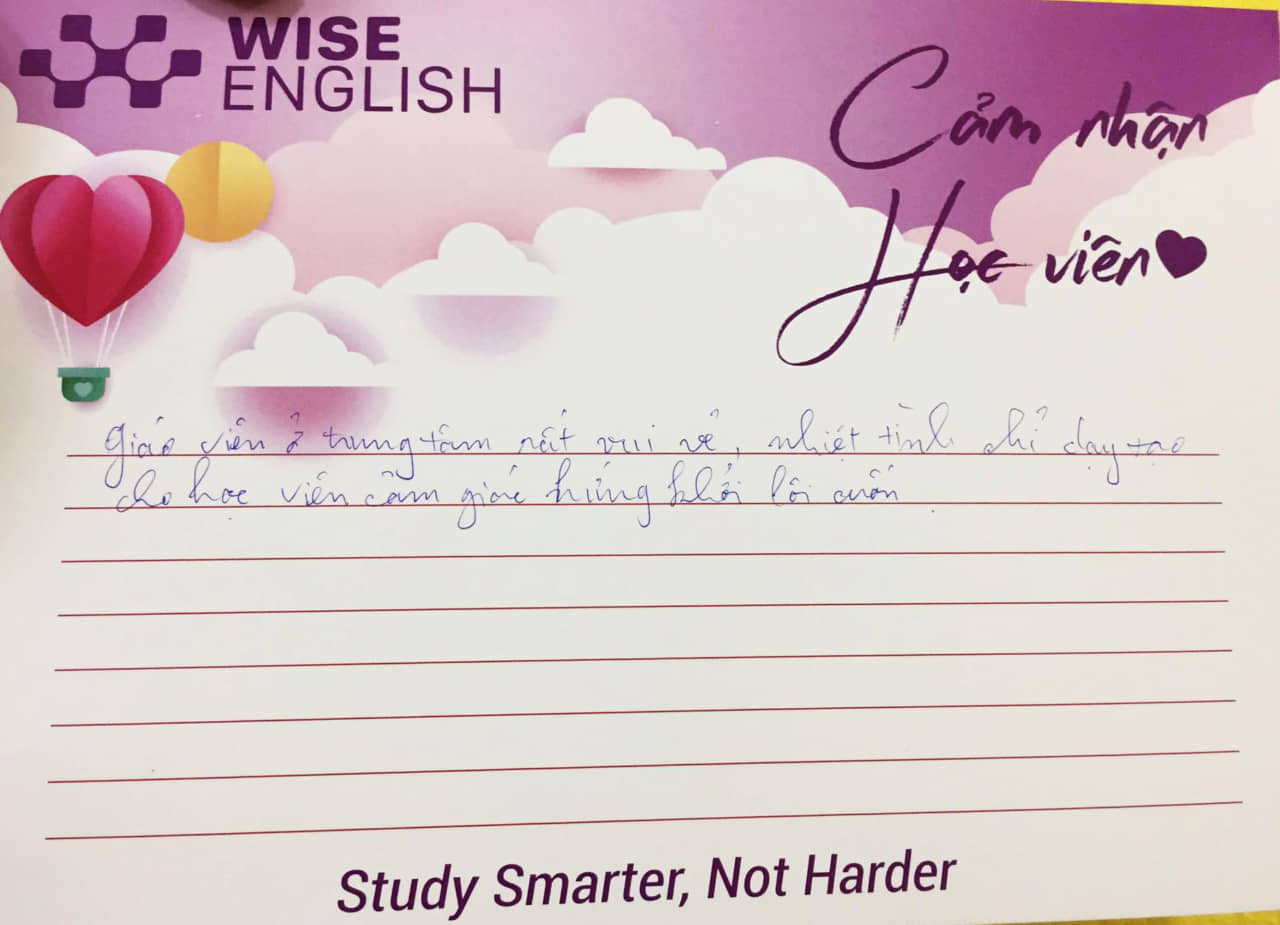 WISE
ENGLISH
Cảm nhận
Học viên
Giáo viên ở trung tâm rất vui vẻ, nhiệt tình chỉ dạy tạo
cho học viên cảm giác hứng khởi lôi cuốn
Study Smarter, Not Harder